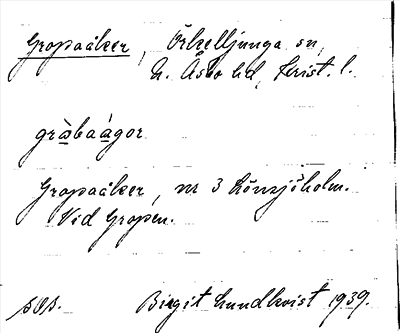 Gropaåker, Örkelljunga sn,
N. Åsbo hd, Krist. l.
gràbaágor
Gropaåker, nr 3 Könsjöholm.
Vid Gropen.
sOs. Birgit Lundkvist 1939.